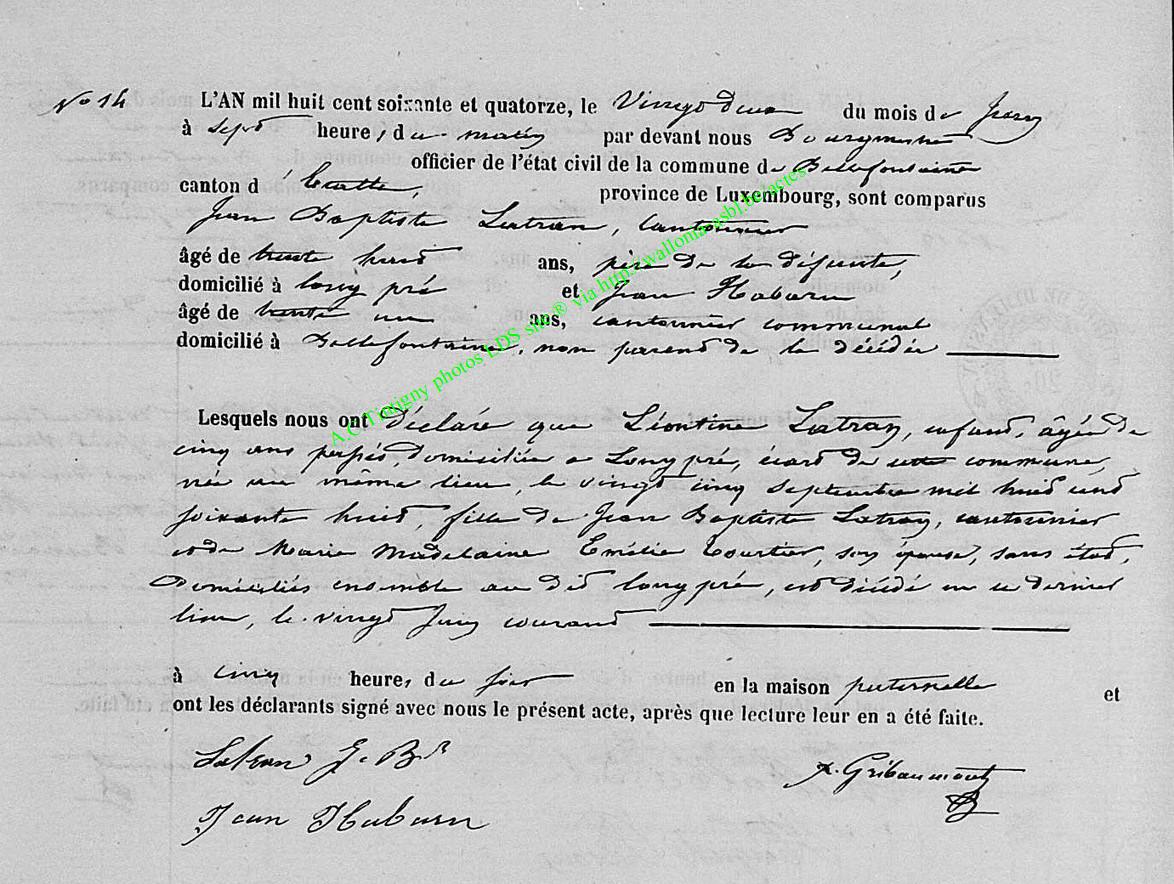 No 14
L'AN mil huit cent soixante et quatorze, le Vingt deux du mois de Juin
à sept heures du matin par devant nous Bourgmestre
officier de l'état civil de la commune de Bellefontaine
canton d'Etalle, province de Luxembourg, sont comparus
Jean Baptiste Latran, cantonnier
âgé de trente huit ans, père de la défunte,
domicilié à Long pré et Jean Habarn
âgé de trente un ans, cantonnier communal
domicilié à Bellefontaine, non parent de la décédée
Lesquels nous ont déclaré que Léontine Latran, enfant, âgée de
cinq ans passés, domiciliée à Longpré, écart de cette commune,
née au même lieu, le vingt cinq Septembre mil huit cent
soixante huit, fille de Jean Baptiste Latran, cantonnier
et de Marie Madelaine Emélie Courtier, son épouse, sans état,
Domiciliés ensemble au dit Long pré, est décédé en ce dernier
lieu, le vingt Juin courant
à cinq heures du soir en la maison paternelle et
ont les déclarants signé avec nous le présent acte, après que lecture leur en a été faite.
Latran J. Bte
Gribaumont
Jean Habarn
A.C. Tintigny photos LDS site ® via http://wallonia-asbl.be/actes